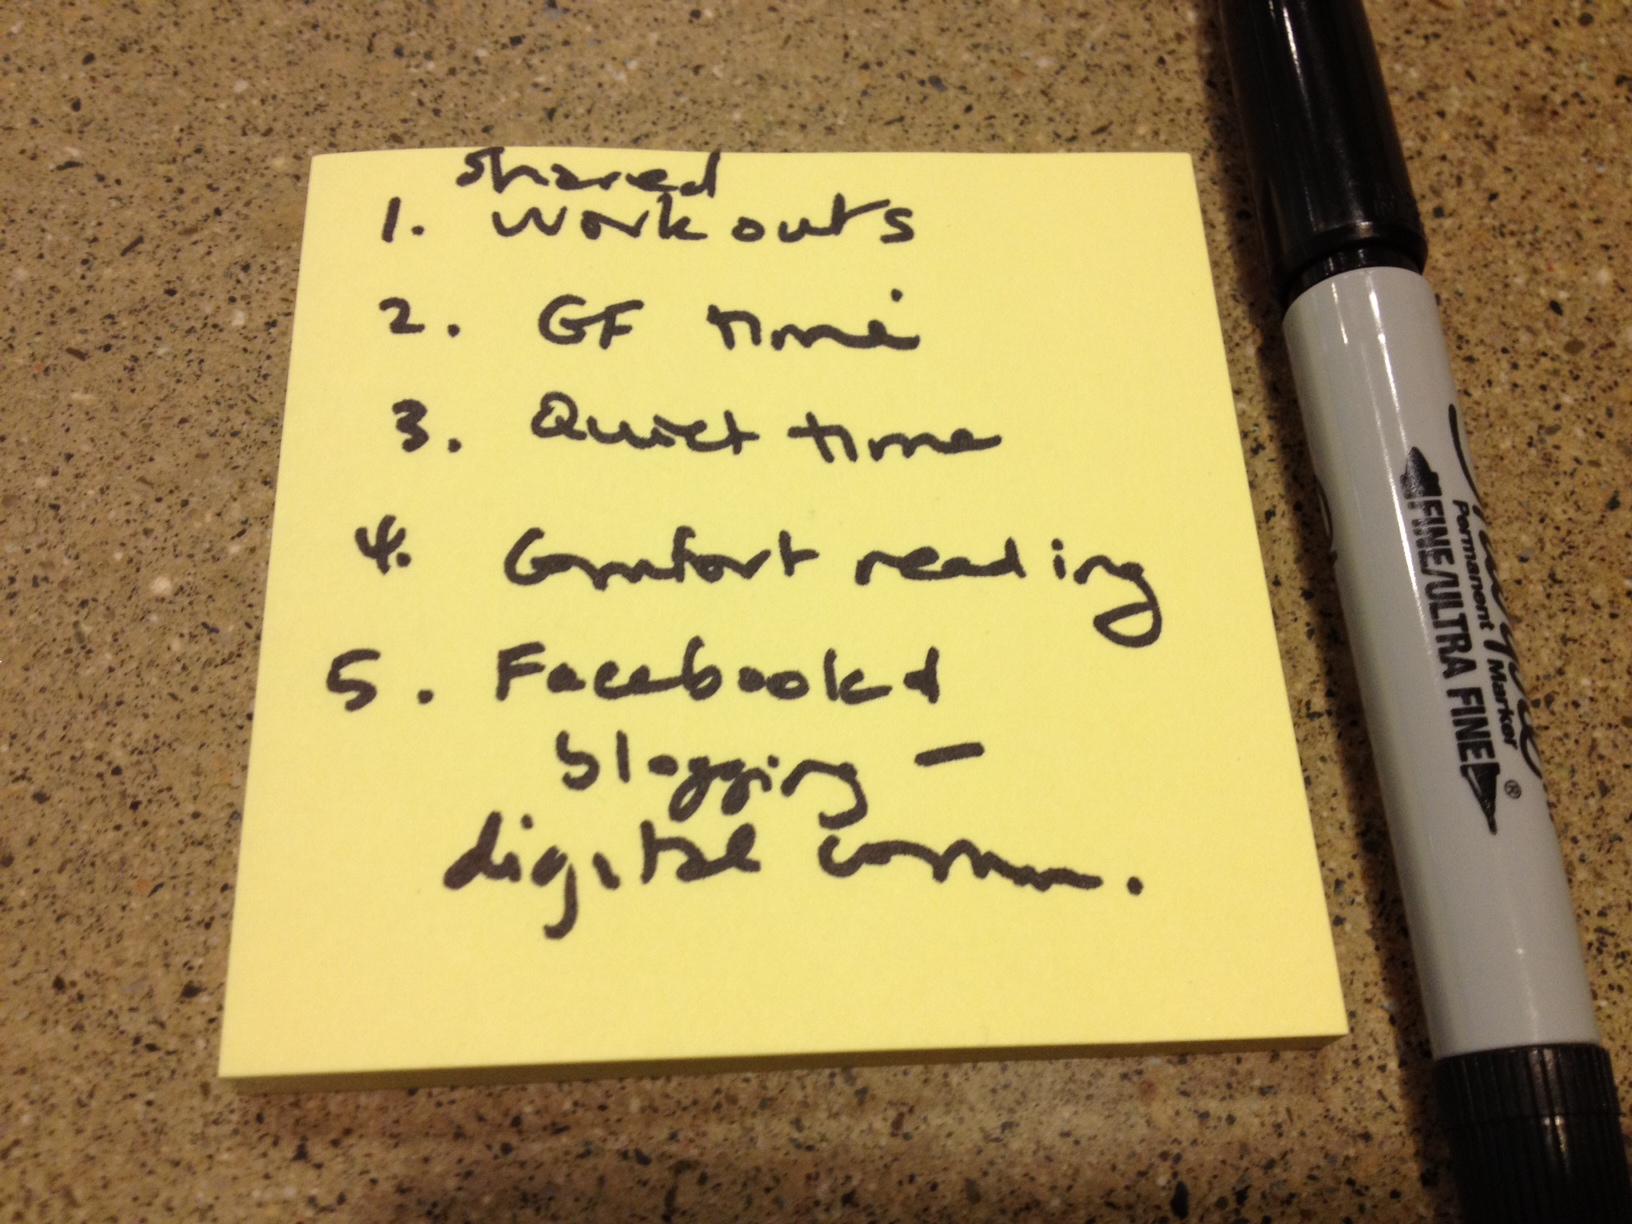 shared
1. workouts
2. GF time
3. Quiet time
4. Comfort reading
5. Facebook &
blogging –
digital comm.
Sharpie
Permanent Marker
FINE/ULTRA FINE
®